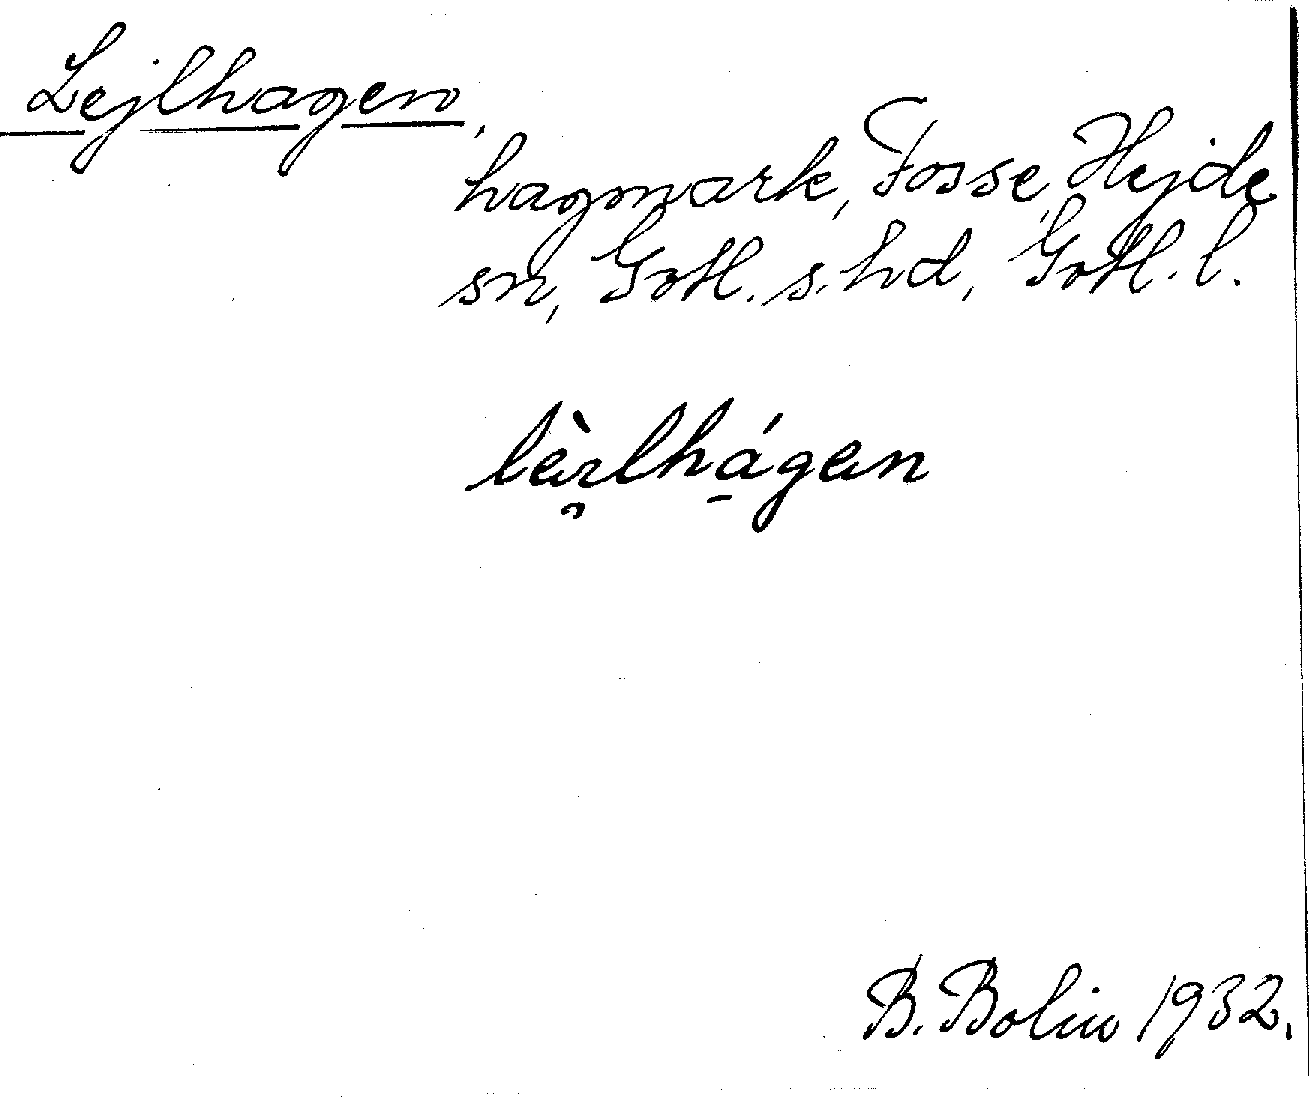 Lejlhagen,
hagmark, Fosse, Hejde
sn, Gotl. s. hd, Gotl. l.
lèi̯lhá̱gen
B. Bolin 1932.